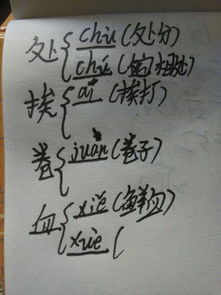 处 chǔ (处分)
chǔ (
挨 ái (挨打)
卷 juàn (卷子)
血 xiě (鲜血)
xuè (